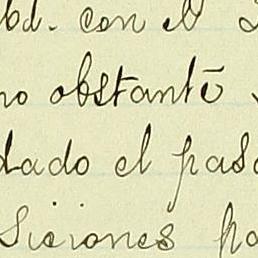 bd. con el
no obstante
dado el pas
siciones pa